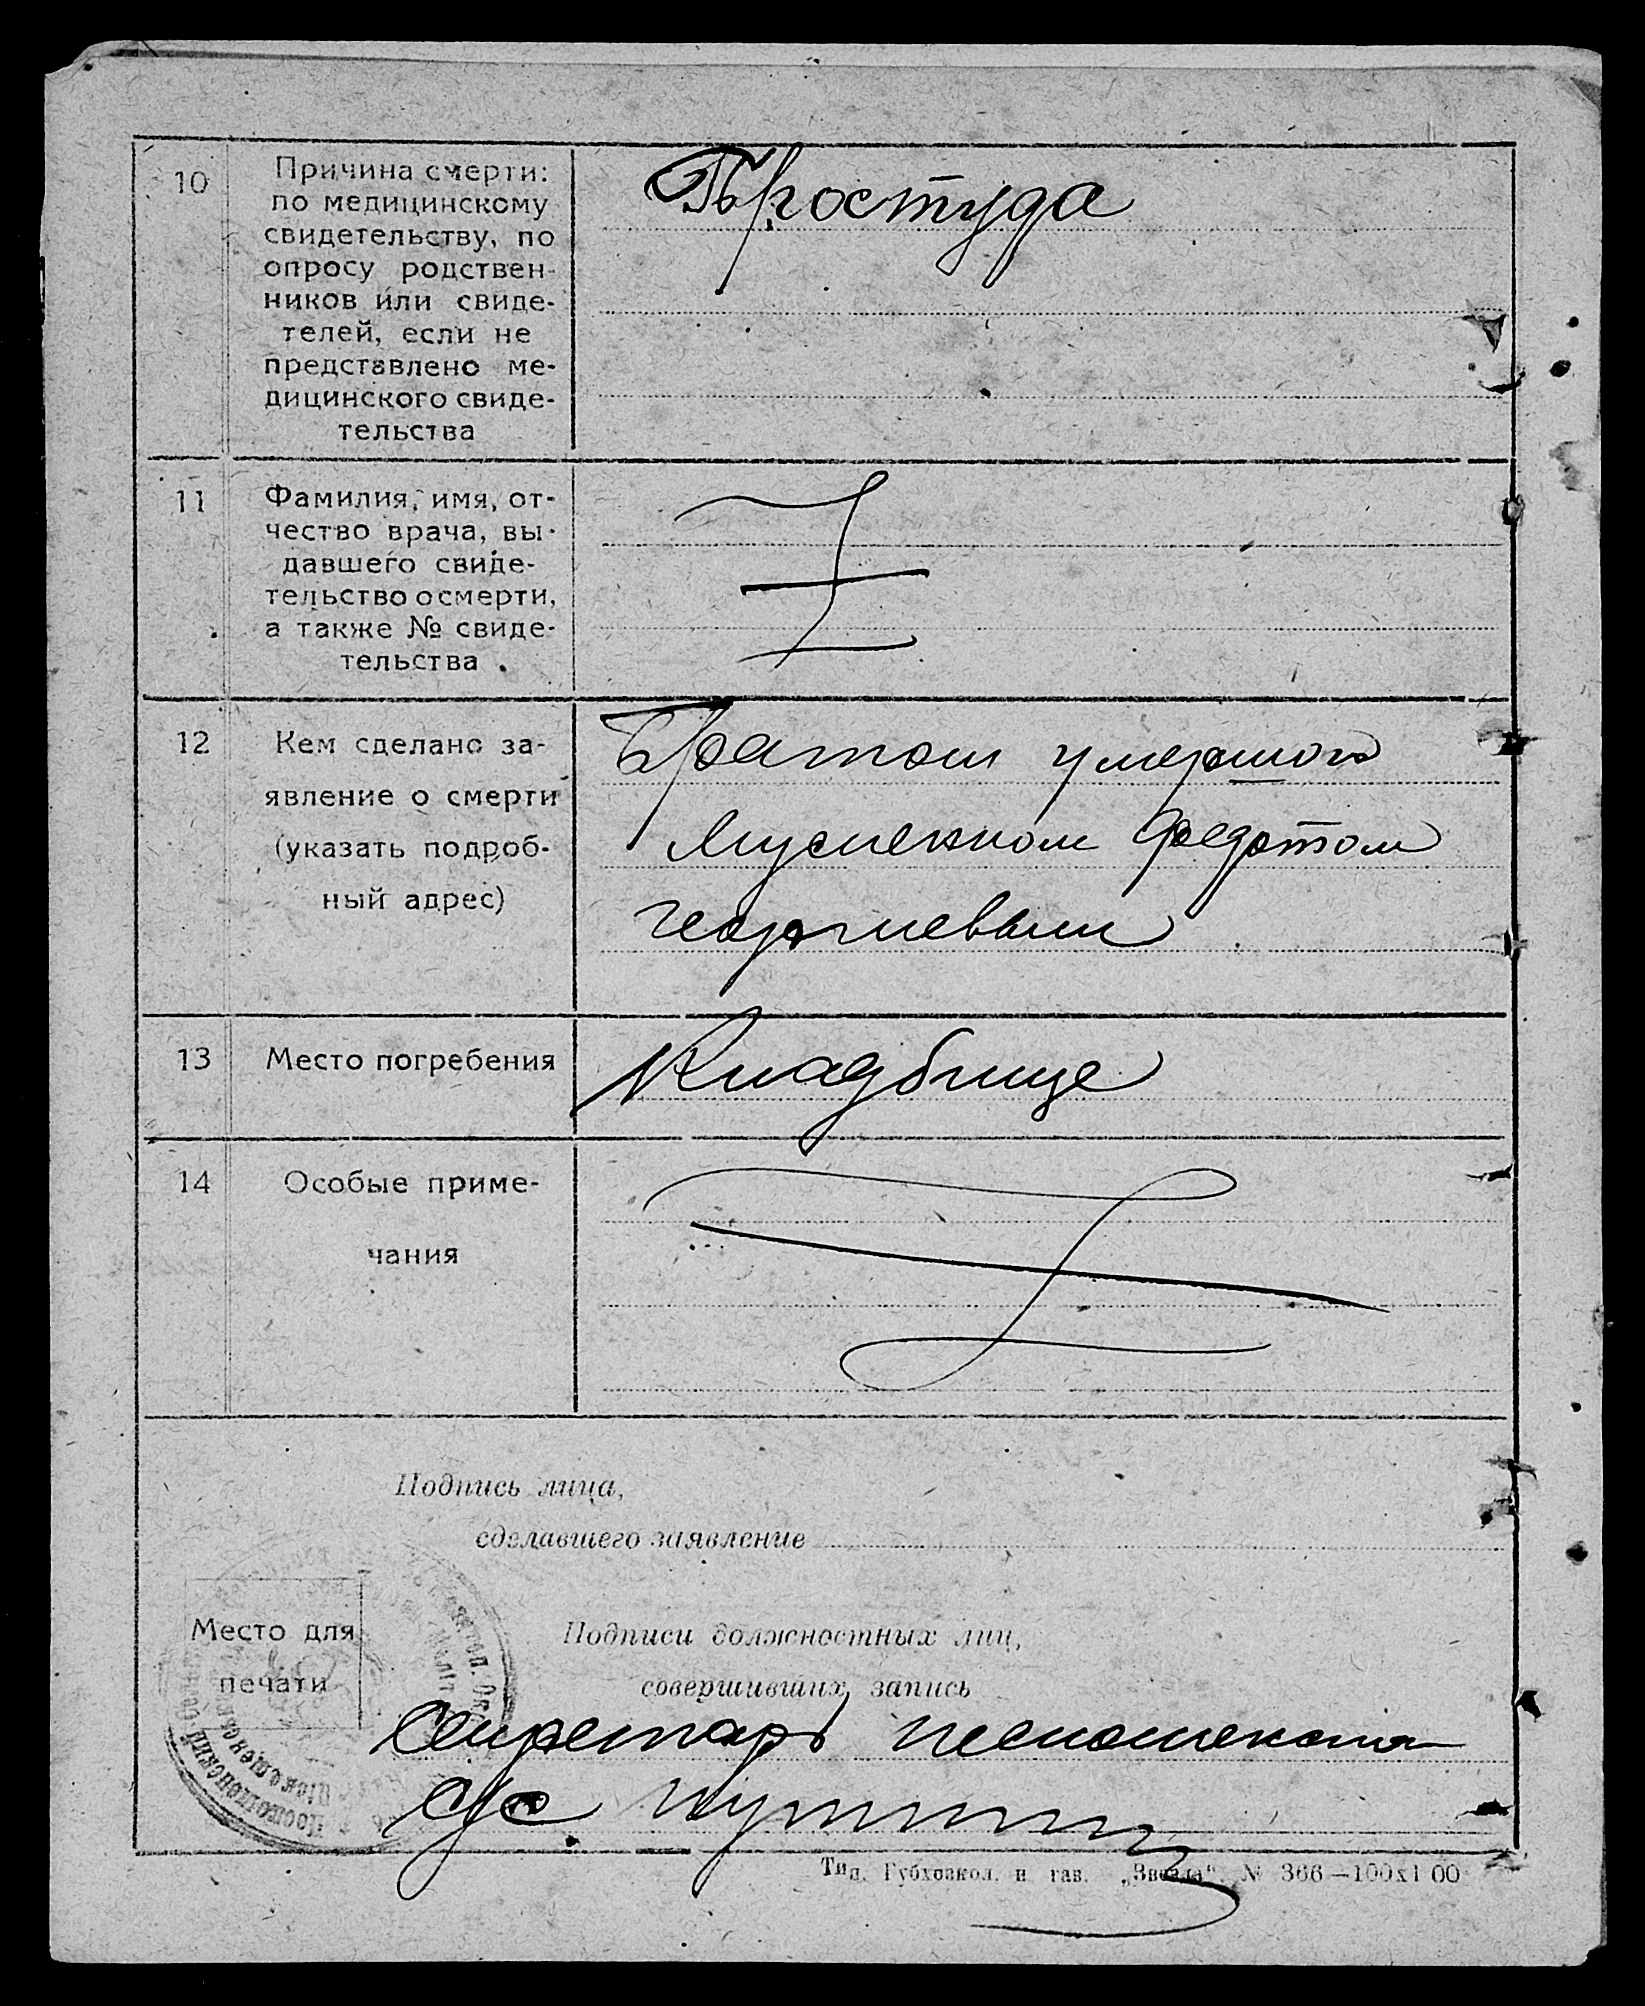 10
Причина смерти:
по медицинскому
свидетельству, по
опросу родствен-
ников или свиде-
телей, если не
представлено ме-
дицинского свиде-
тельства
Простуда
11
Фамилия, имя, от-
чество врача, вы-
давшего свиде-
тельство о смерти,
а также № свиде-
тельства
12
Кем сделано за-
явление о смерти
(указать подроб-
ный адрес)
Братом умершого
Федотом
Георгиевым
13
Место погребения
Кладбище
14
Особые приме-
чания
Подпись лица,
сделавшего заявление
Место для
печати
Подписи должностных лиц,
совершивших запись
Секретарь
с/с
Тип. Губхозкол. и газ. „Звезда“. № 366—100х1 00